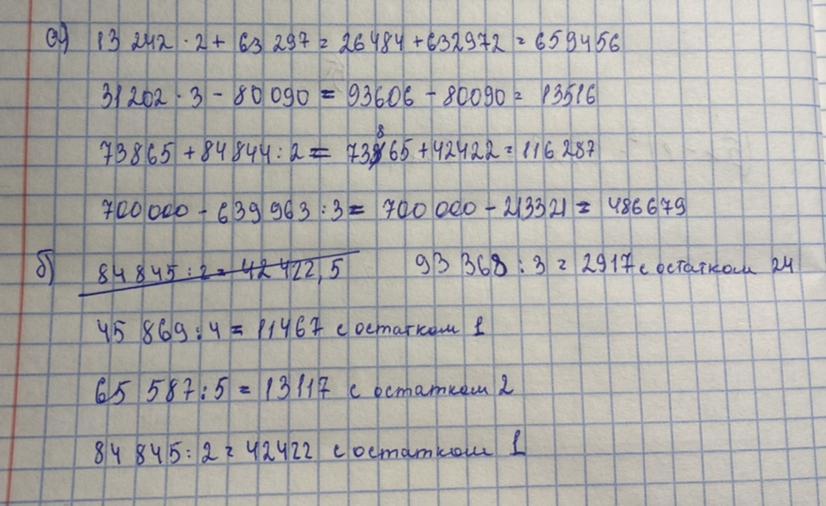 а) 13 242 · 2 + 63 297 = 26 484 + 632972 = 659456
31202 · 3 - 80 090 = 93606 - 80090 = 13516
73865 + 84 844 : 2 = 73865 + 42422 = 116 287
700 000 - 639 963 : 3 = 700 000 - 213321 = 486679
б) 84 845 : 2 = 42 422,5 93 368 : 3 = 2917 с остатком 24
45 869 : 4 = 11467 с остатком 1
65 587 : 5 = 13117 с остатком 2
84 845 : 2 = 42422 с остатком 1